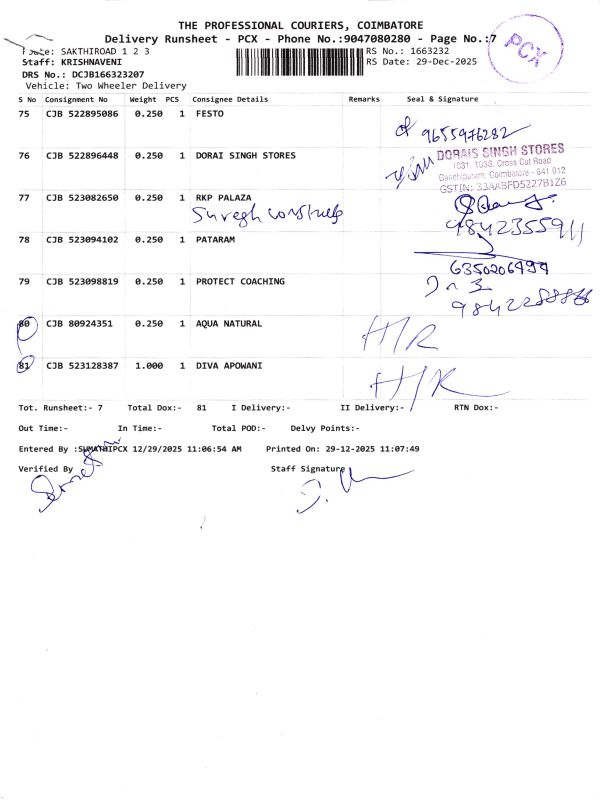 THE PROFESSIONAL COURIERS, COIMBATORE
Delivery Runsheet - PCX - Phone No.:9047080280 - Page No.:7
PCX
SAKTHIROAD 1 2 3
RS No.: 1663232
Staff: KRISHNAVENI
RS Date: 29-Dec-2025
DRS No.: DCJB166323207
Vehicle: Two Wheeler Delivery
S No Consignment No Weight PCS Consignee Details Remarks Seal & Signature
75 CJB 522895086 0.250 1 FESTO
9655976282
76 CJB 522896448 0.250 1 DORAI SINGH STORES
DORAIS SINGH STORES
1031, 1033, Cross Cut Road
Gandhipuram, Coimbatore - 641 012
GSTIN: 33AABFD5227B1Z6
77 CJB 523082650 0.250 1 RKP PALAZA
9842355911
78 CJB 523094102 0.250 1 PATARAM
6350206494
79 CJB 523098819 0.250 1 PROTECT COACHING
80 CJB 80924351 0.250 1 AQUA NATURAL
H/R
81 CJB 523128387 1.000 1 DIVA APOWANI
H/R
Tot. Runsheet:- 7 Total Dox:- 81 I Delivery:- II Delivery:- RTN Dox:-
Out Time:- In Time:- Total POD:- Delvy Points:-
Entered By :SUMATHIPCX 12/29/2025 11:06:54 AM Printed On: 29-12-2025 11:07:49
Verified By Staff Signature